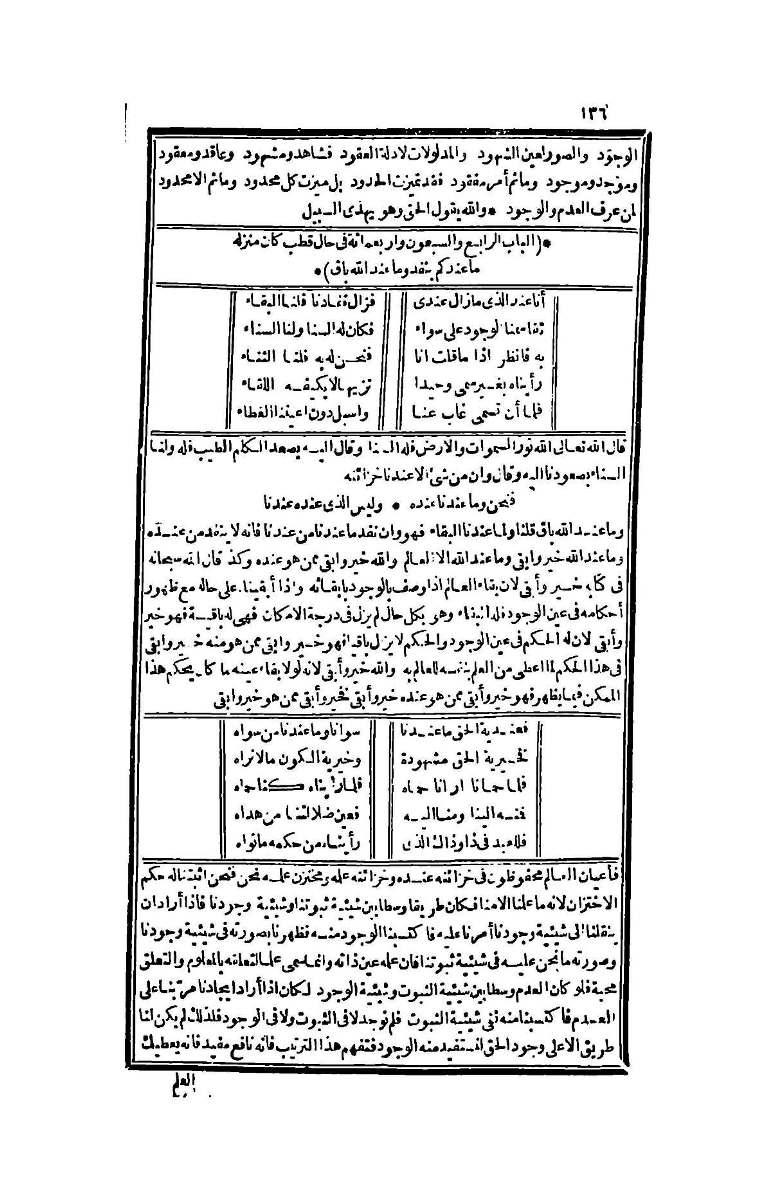 ١٣٦
الوجود والصور لعين الشهود والمدلولات لادلة العقود فشاهد ومشهود وعاقد ومعقود
وموجد وموجود وما ثم أمر مفقود فقد تميزت الحدود بل ميزت كل محدود وما ثم الا محدود
لمن عرف العدم والوجود * والله يقول الحق وهو يهدى السبيل
*(الباب الرابع والسبعون واربعمائة فى حال قطب كان منزله
ما عندكم ينفد وما عند الله باق)*
أنا عند الذى ما زال عندى فزال نفادنا فلنا البقاء
تقاسمنا الوجود على سواء فكان له السنا ولنا السناء
به فانظر اذا ما قلت انا فنحن له به فلنا الثناء
رأيناه بغير سمى وحيدا نزيها لا يكيفه اللقاء
فلما أن تسمى غاب عنا واسبل دون اعيننا الغطاء
قال الله تعالى الله نور السموات والارض فله السنا وقال اليه يصعد الكلم الطيب فله ولنا
السناء بصعودنا اليه وقال وان من شئ الا عندنا خزائنه
فنحن وما عندنا عنده * وليس الذى عنده عندنا
وما عند الله باق فلنا ولما عندنا البقاء فهو وان نفد ما عندنا من عندنا فانه لا ينفد من عنده
وما عند الله خير وابقى وما عند الله الا العالم والله خير وابقى ممن هو عنده وكذ قال انه سبحانه
فى كتابه خير وأبقى لان بقاء العالم اذا وصف بالوجود بابقائه واذا أبقينا على حاله مع ظهور
أحكامه فى عين الوجود فله البقاء وهو بكل حال لم يزل فى درجة الامكان فهى له باقية فهو خير
وأبقى لان له الحكم فى عين الوجود والحكم لا يزل باقيا فهو خير وابقى ممن هو منه خير وابقى
فى هذا الحكم لما اعطى من العلم بنفسه للعالم به والله خير وأبقى لانه لولا بقاء عينه ما كان يحكم هذا
الممكن فيما يظهر فهو خير وأبقى ممن هو عنده خير وأبقى فخير وأبقى ممن هو خير وابقى
فعندية الحق ما عندنا سوانا وما عندنا من سواه
فخيرية الحق مشهودة وخيرية الكون ما لا نراه
فلما حمانا ارانا حماه فلما رأيناه كنا حماه
فمنه الينا ومنا اليه فعين ضلالتنا من هداه
فللعبد فى ذا وذاك الذى رأيناه من حكمه ما نواه
فأعيان العالم محفوظون فى خزائنه عنده وخزائنه علمه ومختزن علمه نحن فنحن اثبتنا له حكم
الاختزان لانه ما علمنا الا منا فكان طريقا وسطا بين شيئية ثبوتنا وشيئية وجودنا فاذا أراد ان
ينقلنا الى شيئية وجودنا أمرنا عليه فاكتسبنا الوجود منه فظهرنا بصورته فى شيئية وجودنا
وصورته ما نحن عليه فى شيئية ثبوتنا فان علمه عين ذاته وانما سمى علما لتعلقه بالمعلوم والتعلق
محبة فلو كان العدم وسطا بين شيئية الثبوت وشيئية الوجود لكان اذا أراد ايجادنا مر بنا على
العدم فاكتسبنا منه نفى شيئية الثبوت فلم نوجد لا فى الثبوت ولا فى الوجود فلذلك لم يكن لنا
طريق الا على وجود الحق لنستفيد منه الوجود فتفهم هذا الترتيب فانه نافع مفيد فانه يعطيك
العلم